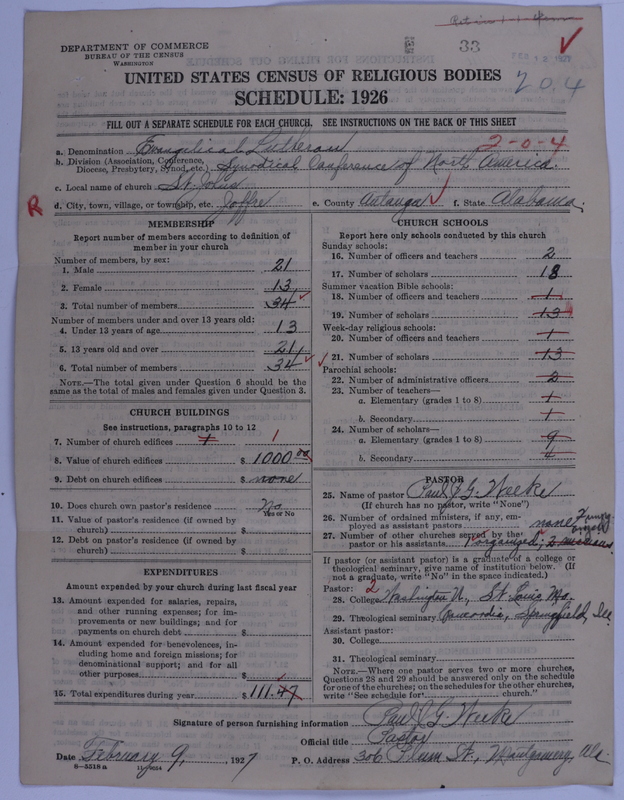 33
DEPARTMENT OF COMMERCE
BUREAU OF THE CENSUS
WASHINGTON
UNITED STATES CENSUS OF RELIGIOUS BODIES
204
SCHEDULE: 1926
FILL OUT A SEPARATE SCHEDULE FOR EACH CHURCH. SEE INSTRUCTIONS ON THE BACK OF THIS SHEET
a. Denomination Evangelical Lutheran 2-0-4
b. Division (Association, Conference, Diocese, Presbytery, Synod, etc.) Synodical Conference of North America.
c. Local name of church St. Johns
R
d. City, town, village, or township, etc. Joffre e. County Autauga f. State Alabama
MEMBERSHIP
Report number of members according to definition of
member in your church
Number of members, by sex:
1. Male 21
2. Female 13
3. Total number of members 34
Number of members under and over 13 years old:
4. Under 13 years of age 13
5. 13 years old and over 21
6. Total number of members 34
NOTE.—The total given under Question 6 should be the
same as the total of males and females given under Question 3.
CHURCH BUILDINGS
See instructions, paragraphs 10 to 12
7. Number of church edifices 1 1
8. Value of church edifices $ 1000.00
9. Debt on church edifices $ none
10. Does church own pastor's residence No
Yes or No
11. Value of pastor's residence (if owned by
church) $
12. Debt on pastor's residence (if owned by
church) $
EXPENDITURES
Amount expended by your church during last fiscal year
13. Amount expended for salaries, repairs,
and other running expenses; for im-
provements or new buildings; and for
payments on church debt $
14. Amount expended for benevolences, in-
cluding home and foreign missions; for
denominational support; and for all
other purposes $
15. Total expenditures during year $ 111.47
CHURCH SCHOOLS
Report here only schools conducted by this church
Sunday schools:
16. Number of officers and teachers 2
17. Number of scholars 18
Summer vacation Bible schools:
18. Number of officers and teachers 1
19. Number of scholars 13
Week-day religious schools:
20. Number of officers and teachers 1
21. Number of scholars 13
Parochial schools:
22. Number of administrative officers 2
23. Number of teachers—
a. Elementary (grades 1 to 8) 1
b. Secondary 1
24. Number of scholars—
a. Elementary (grades 1 to 8) 9
b. Secondary 4
PASTOR
25. Name of pastor Paul J. G. Weeke
(If church has no pastor, write "None")
26. Number of ordained ministers, if any, em-
ployed as assistant pastors none
27. Number of other churches served by the
pastor or his assistants 1 organized, 2 missions
If pastor (or assistant pastor) is a graduate of a college or
theological seminary, give name of institution below. (If
not a graduate, write "No" in the space indicated.)
Pastor: 2
28. College Washington U., St. Louis Mo.
29. Theological seminary Concordia, Springfield, Ill.
Assistant pastor:
30. College
31. Theological seminary
NOTE.—Where one pastor serves two or more churches,
Questions 28 and 29 should be answered only on the schedule
for one of the churches; on the schedules for the other churches,
write "See schedule for church."
Signature of person furnishing information Paul J. G. Weeke
Official title Pastor
Date February 9, 1927 P. O. Address 306 Plum St., Montgomery, Ala.
8—5518 a